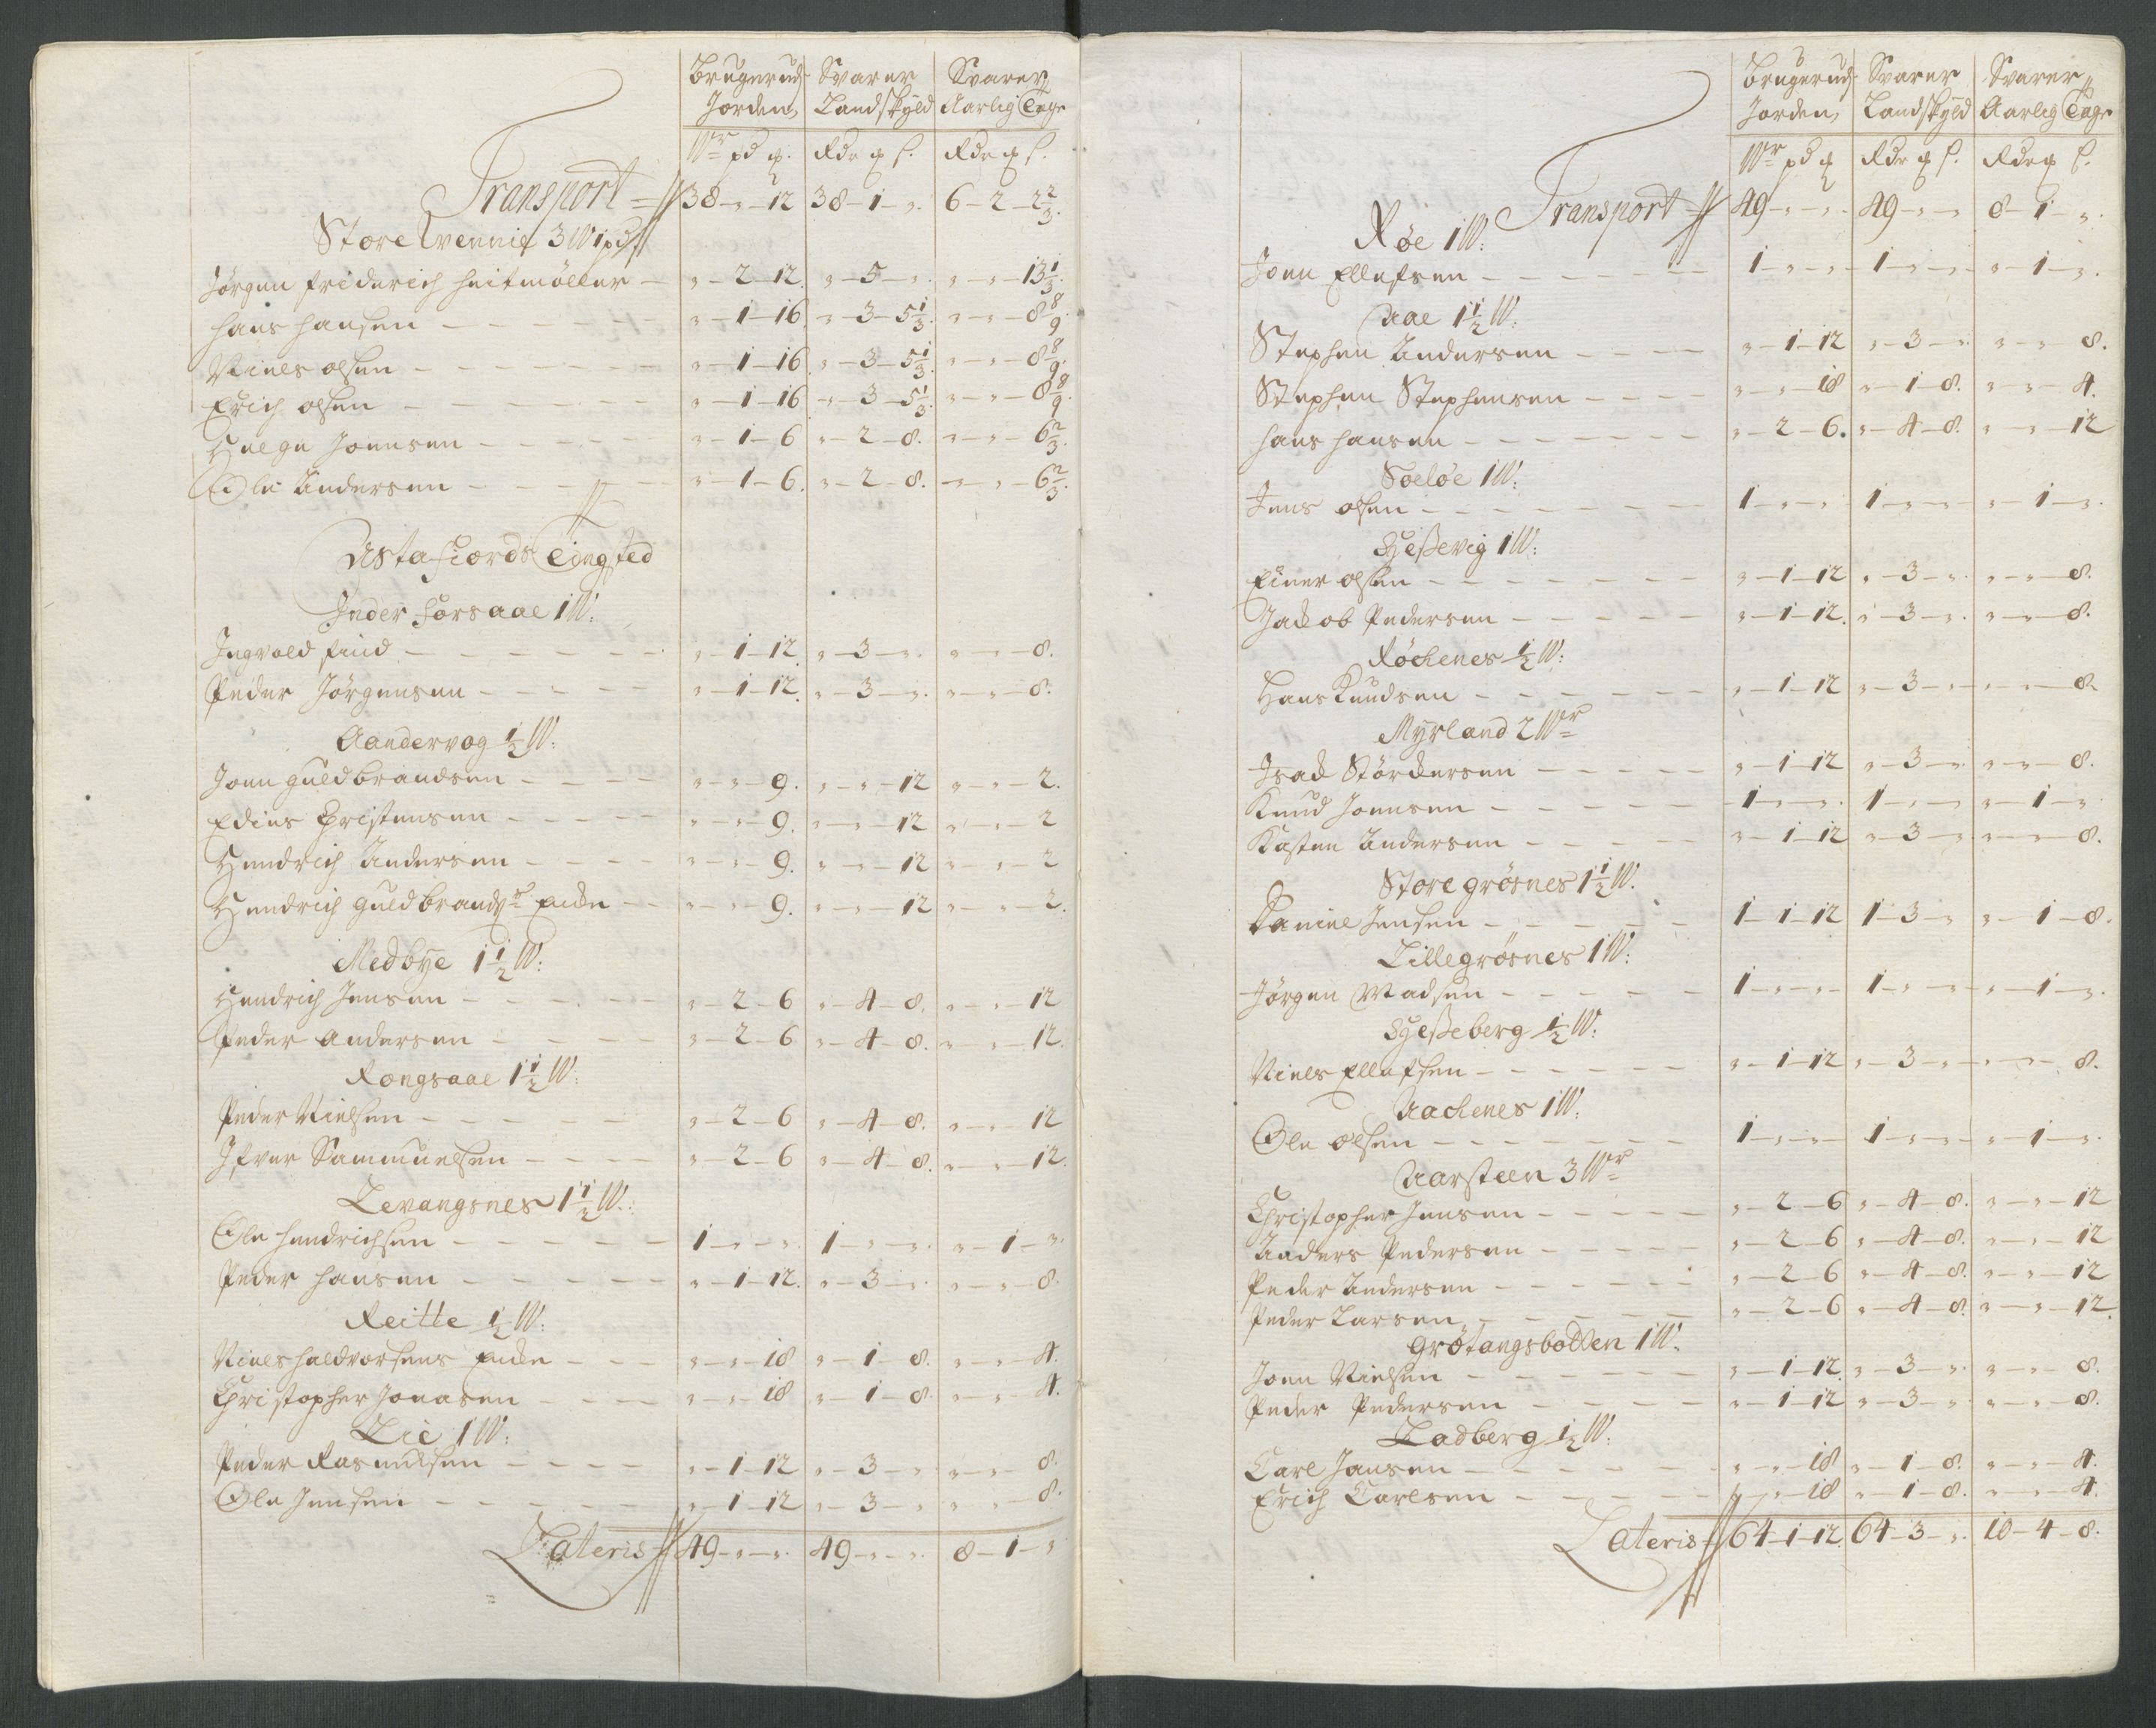 Brugerud Svarer Svarer
Jorden Landskyld Aarlig Tage
Wr pd ꝧ. Rdr ꝧ s. Rdr ꝧ s.
Transport = 38 - " - 12 38 - 1 - ". 6 - 2 - 2 2/3.
Store Qvennie 3 W 1 pd
Jørgen Friderich Heitmøller - " - 2 - 12. " - 5 - ". " - " - 13 1/3.
Hans Hansen - " - 1 - 16. " - 3 - 5 1/3. " - " - 8 8/9.
Niels Olsen - " - 1 - 16. " - 3 - 5 1/3. " - " - 8 8/9.
Erich Olsen - " - 1 - 16. " - 3 - 5 1/3. " - " - 8 8/9.
Helge Joensen - " - 1 - 6 " - 2 - 8. " - " - 6 2/3.
Ole Andersen - " - 1 - 6. " - 2 - 8. " - " - 6 2/3.
Astafiords Tingsted
Inder Forsaae 1 W:
Ingvold Find - " - 1 - 12. " - 3 - ". " - " - 8.
Peder Jørgensen - " - 1 - 12. " - 3 - ". " - " - 8.
Aandervog 1/2 W:
Joen Guldbrandsen - " - " - 9. " - " - 12 " - " - 2.
Edies Christensen - " - " - 9. " - " - 12 " - " - 2
Hendrich Andersen - " - " - 9. " - " - 12 " - " - 2
Hendrich Guldbrands: Encke - " - " - 9. " - " - 12 " - " - 2.
Medbye 1 1/2 W:
Hendrich Jensen - " - 2 - 6 " - 4 - 8. " - " - 12
Peder Andersen - " - 2 - 6 " - 4 - 8. " - " - 12.
Rongsaae 1 1/2 W:
Peder Nielsen - " - 2 - 6 " - 4 - 8. " - " - 12
Ifver Sammuelsen - " - 2 - 6 " - 4 - 8. " - " - 12.
Levangsnes 1 1/2 W:
Ole Hendrichsen - 1 - " - ". 1 - " - ". " - 1 - ".
Peder Hansen - " - 1 - 12. " - 3 - ". " - " - 8.
Reitte 1/2 W:
Niels Haldvorsens Encke - " - " - 18 " - 1 - 8. " - " - 4.
Christopher Jonasen - " - " - 18 " - 1 - 8. " - " - 4.
Lie 1 W:
Peder Rasmusen - " - 1 - 12 " - 3 - " " - " - 8.
Ole Jensen - " - 1 - 12 " - 3 - " " - " - 8.
Lateris 49 - " - ". 49 - " - ". 8 - 1 - "
Brugerud Svarer Svarer
Jorden Landskyld Aarlig Tage
Wr pd ꝧ Rdr ꝧ s. Rdr ꝧ s.
Transport 49 - " - ". 49 - " - " 8 - 1 - ".
Røe 1 W:
Joen Ellefsen - 1 - " - " 1 - " - " " - 1 - ".
Aae 1 1/2 W:
Stephen Andersen - " - 1 - 12 " - 3 - ". " - " - 8.
Stephen Stephensen - " - " - 18 " - 1 - 8. " - " - 4.
Hans Hansen - " - 2 - 6. " - 4 - 8. " - " - 12
Soeløe 1 W:
Jens Olsen - 1 - " - " 1 - " - " " - 1 - ".
Hessevig 1 W:
Einer Olsen - " - 1 - 12 " - 3 - ". " - " - 8.
Jackob Pedersen - " - 1 - 12. " - 3 - ". " - " - 8.
Røchenes 1/2 W:
Hans Knudsen - " - 1 - 12 " - 3 - " " - " - 8.
Myrland 2 Wr
Isack Størckersen - " - 1 - 12 " - 3 - " " - " - 8.
Knud Joensen - 1 - " - ". 1 - " - " " - 1 - "
Kasten Andersen - " - 1 - 12 " - 3 - " " - " - 8.
Store grøsnes 1 1/2 W.
Daniel Jensen - 1 - 1 - 12 1 - 3 - " " - 1 - 8.
Lillegrøsnes 1 W:
Jørgen Madsen - 1 - " - " 1 - " - " " - 1 - ".
Hesseberg 1/2 W:
Niels Ellefsen - " - 1 - 12 " - 3 - " " - " - 8.
Aachenes 1 W:
Ole Olsen - 1 - " - " 1 - " - " " - 1 - ".
Aarsteen 3 Wr
Christopher Jensen - " - 2 - 6 " - 4 - 8. " - " - 12
Anders Pedersen - " - 2 - 6 " - 4 - 8. " - " - 12
Peder Andersen - " - 2 - 6 " - 4 - 8. " - " - 12
Peder Larsen - " - 2 - 6 " - 4 - 8. " - " - 12.
Grøtangsbotten 1 W.
Joen Nielsen - " - 1 - 12. " - 3 - ". " - " - 8.
Peder Pedersen - " - 1 - 12 " - 3 - " " - " - 8.
Ladberg 1/2 W:
Carl Jansen - " - " - 18 " - 1 - 8. " - " - 4.
Erich Carlsen - " - " - 18 " - 1 - 8. " - " - 4.
Lateris 64 - 1 - 12. 64 - 3 - ". 10 - 4 - 8.